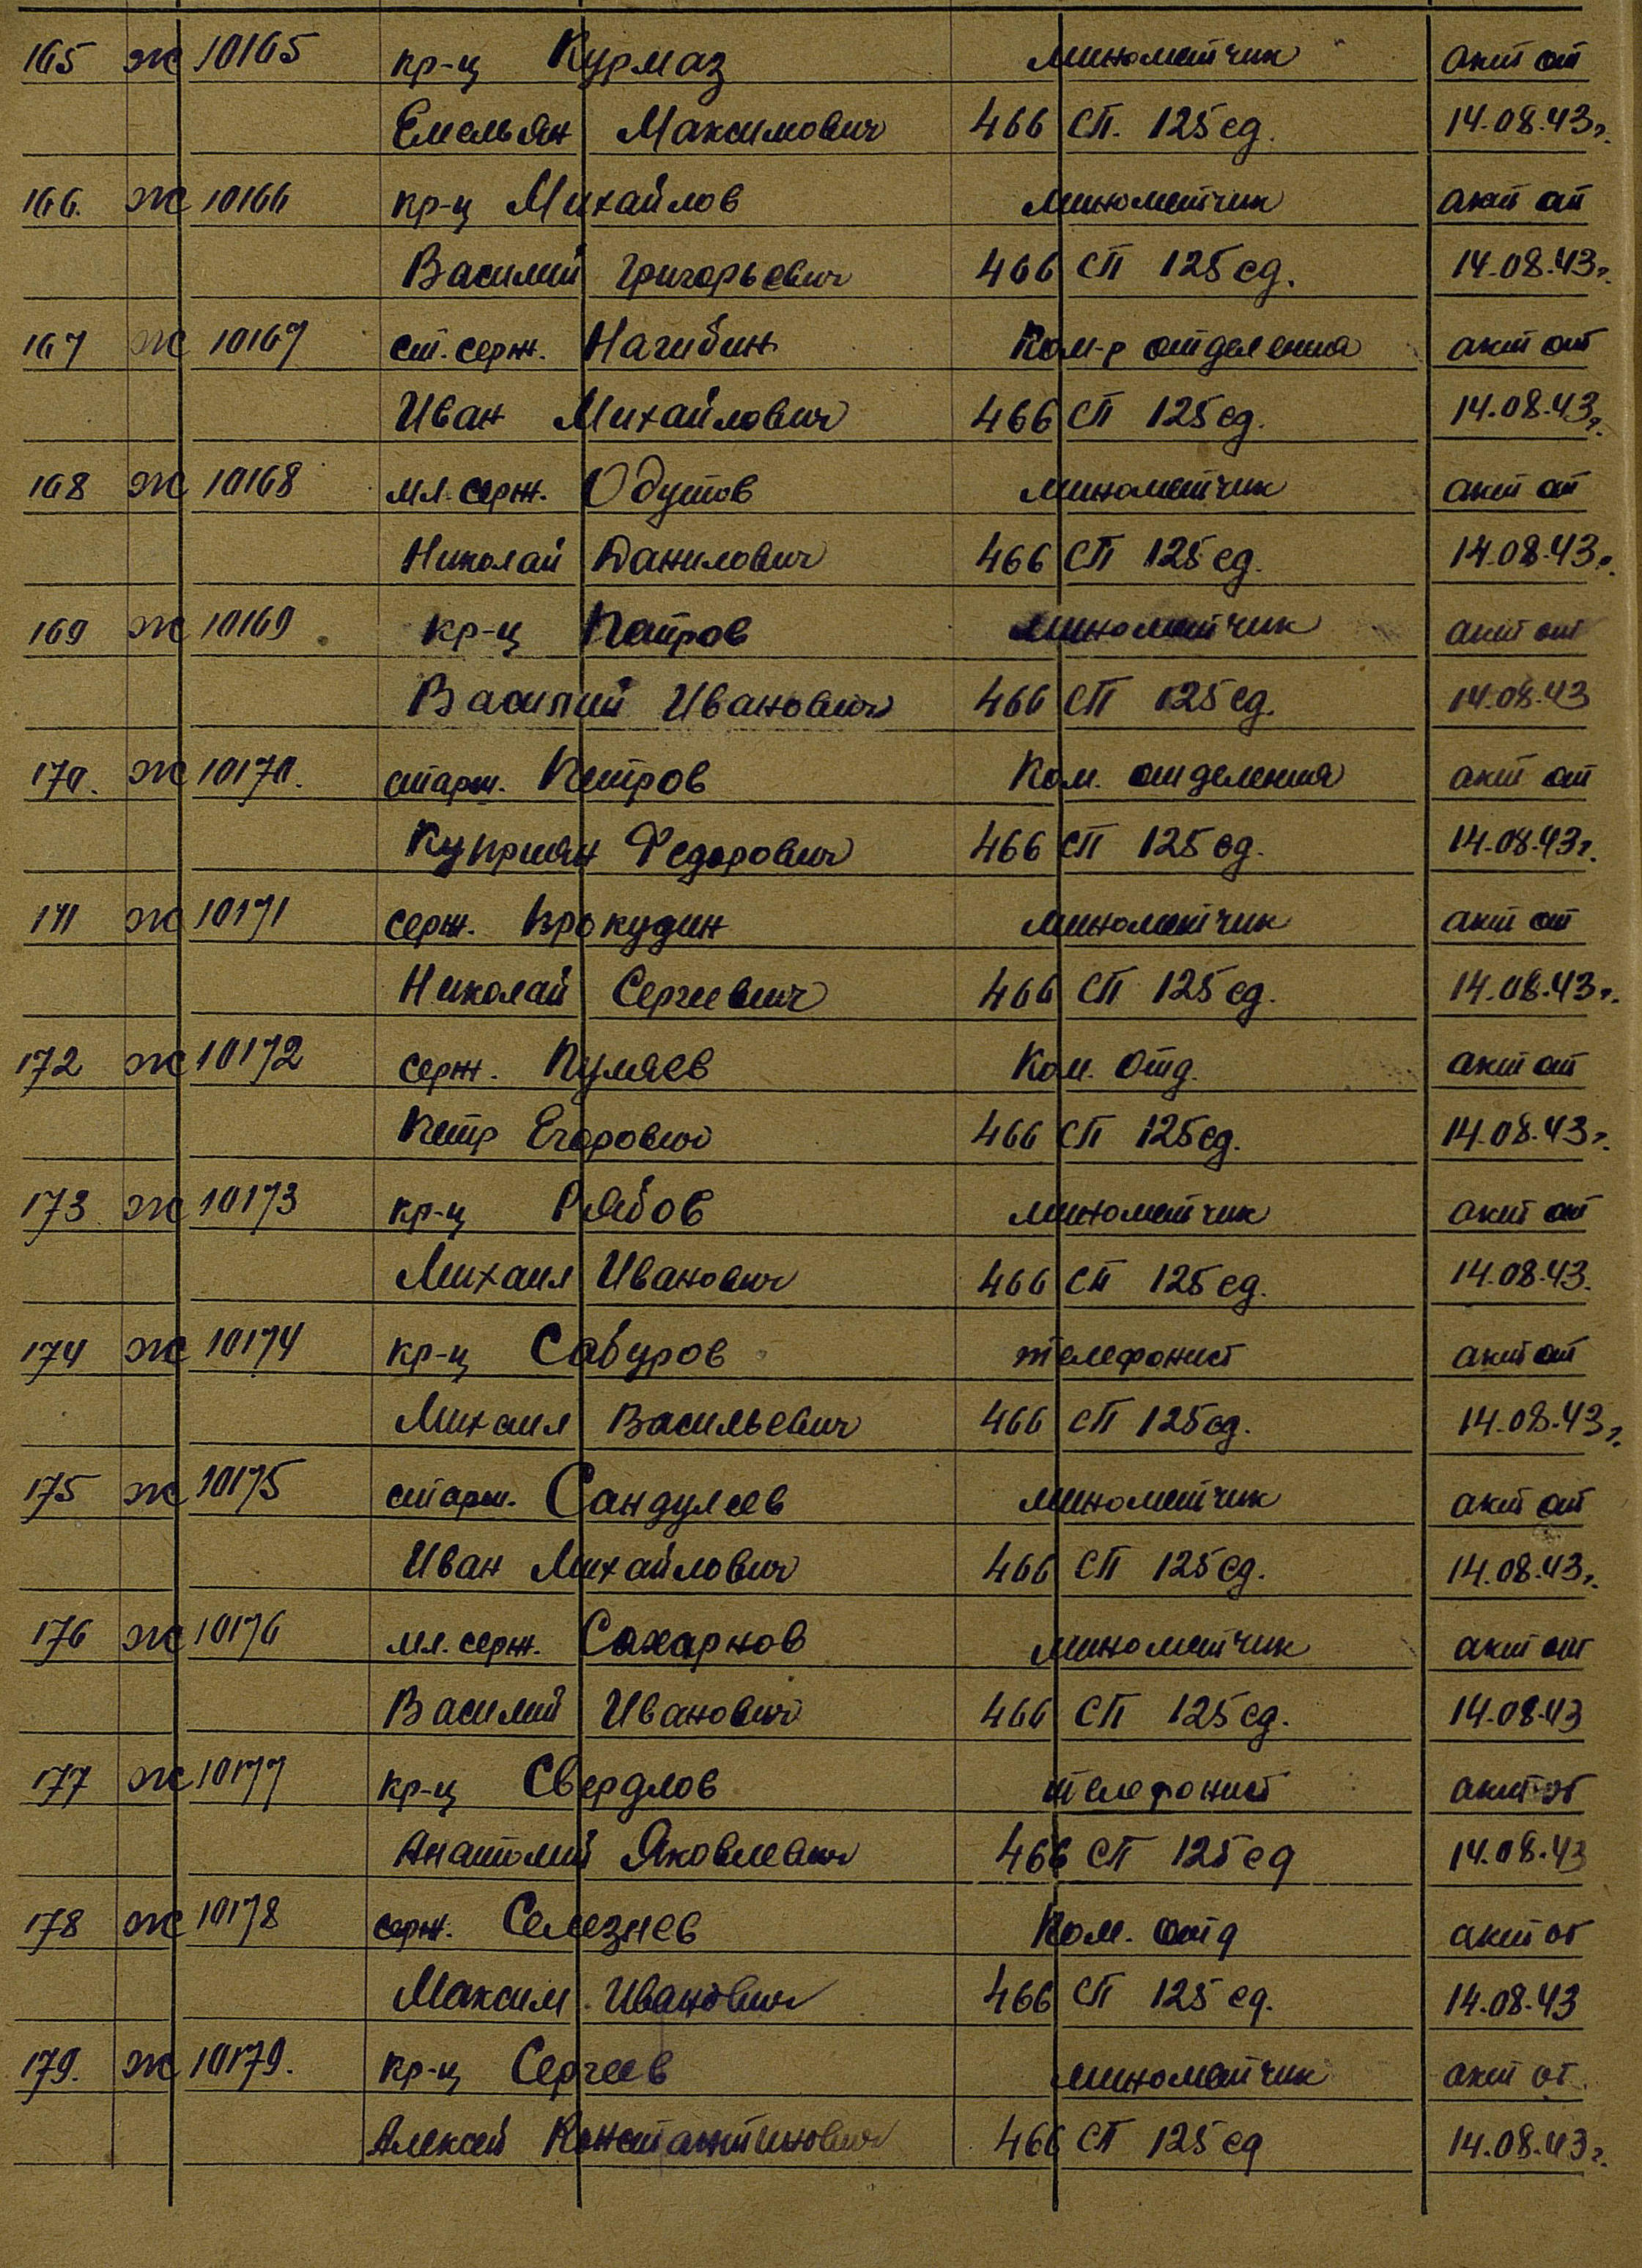 165 Ж 10165 кр-ц Курмаз минометчик акт от
Емельян Максимович 466 СП. 125 сд. 14.08.43г.
166. Ж 10166 кр-ц Михайлов минометчик акт от
Василий Григорьевич 466 СП 125 сд. 14.08.43г.
167 Ж 10167 ст. серж. Нагибин Ком-р отделения акт от
Иван Михайлович 466 СП 125 сд. 14.08.43г.
168 Ж 10168 мл. серж. Одутов минометчик акт от
Николай Данилович 466 СП 125 сд. 14.08.43г.
169 Ж 10169 кр-ц Петров минометчик акт от
Василий Иванович 466 СП 125 сд. 14.08.43
170. Ж 10170. старш. Петров Ком. отделения акт от
Куприян Федорович 466 СП 125 сд. 14.08.43г.
171 Ж 10171 серж. Прокудин минометчик акт от
Николай Сергеевич 466 СП 125 сд. 14.08.43г.
172 Ж 10172 серж. Пуляев Ком. Отд. акт от
Петр Егорович 466 СП 125 сд. 14.08.43г.
173 Ж 10173 кр-ц Рябов минометчик акт от
Михаил Иванович 466 СП 125 сд. 14.08.43.
174 Ж 10174 кр-ц Сабуров телефонист акт от
Михаил Васильевич 466 СП 125 сд. 14.08.43г.
175 Ж 10175 старш. Сандулеев минометчик акт от
Иван Михайлович 466 СП 125 сд. 14.08.43г.
176 Ж 10176 мл. серж. Сахарнов минометчик акт от
Василий Иванович 466 СП 125 сд. 14.08.43
177 Ж 10177 кр-ц Свердлов телефонист акт от
Анатолий Яковлевич 466 СП 125 сд 14.08.43
178 Ж 10178 серж. Селезнев Ком. отд акт от
Максим Иванович 466 СП 125 сд. 14.08.43
179. Ж 10179. кр-ц Сергеев минометчик акт от
Алексей Константинович 466 СП 125 сд 14.08.43г.